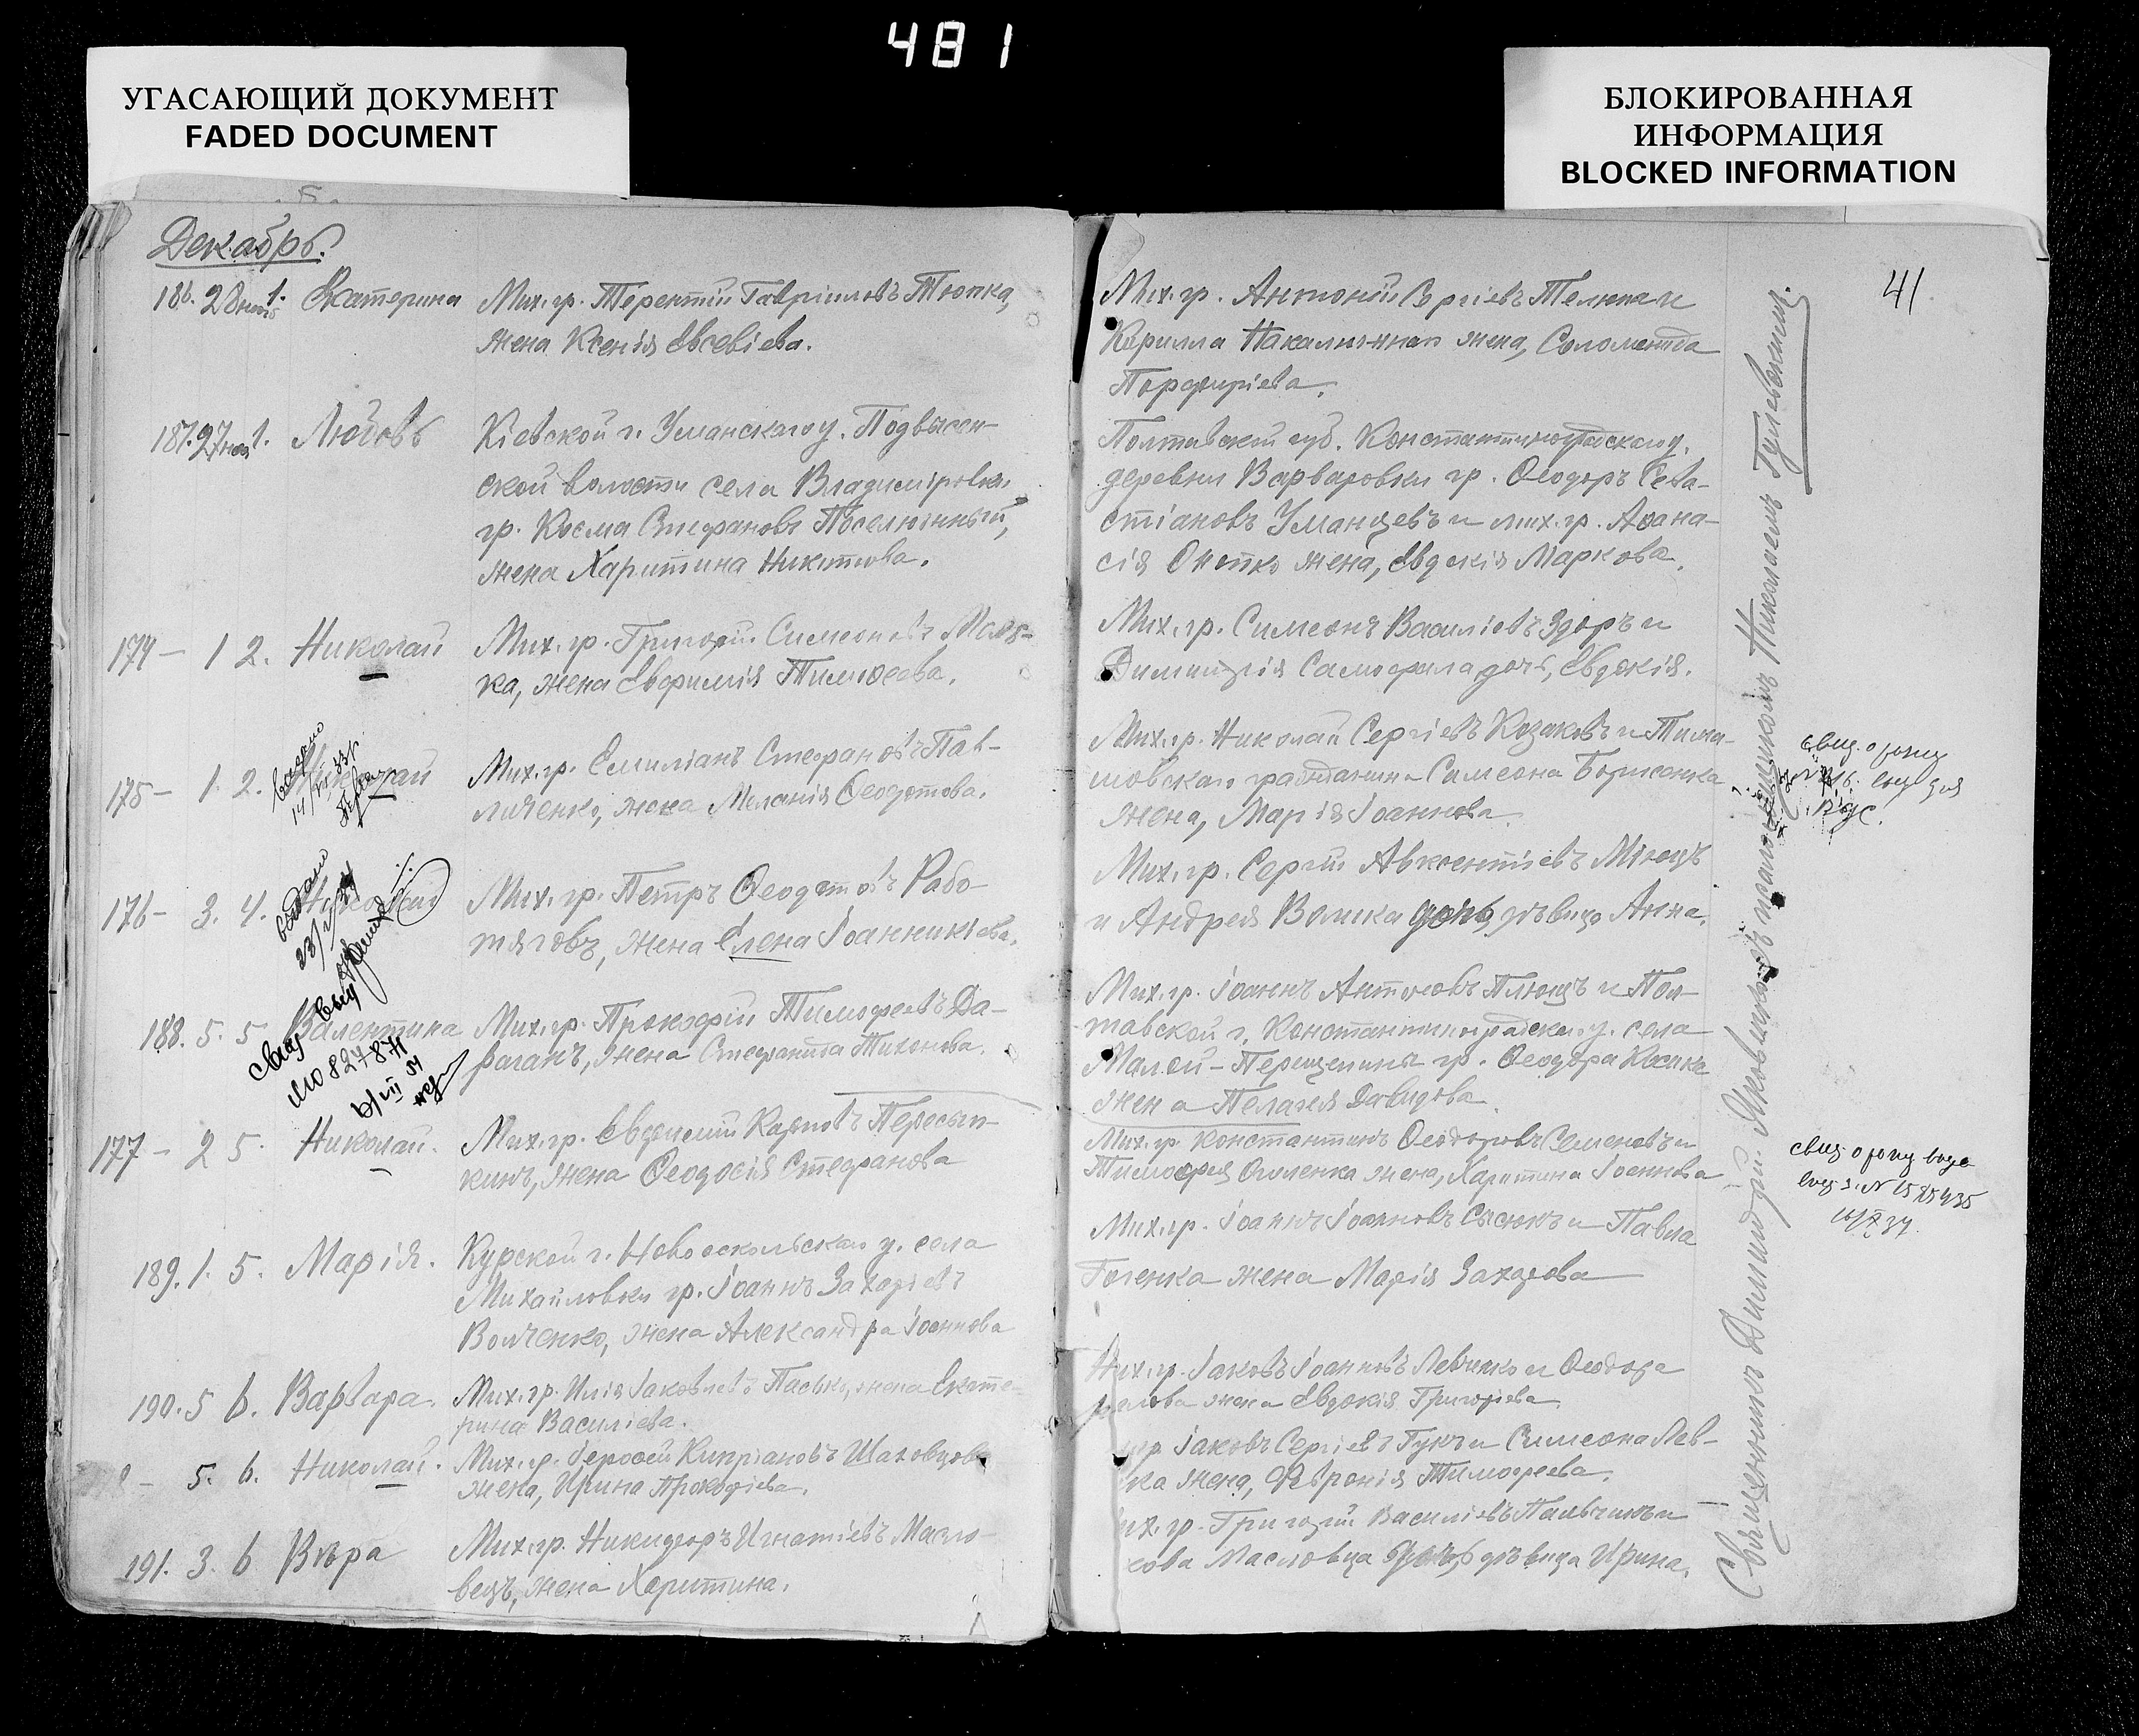 481
УГАСАЮЩИЙ ДОКУМЕНТ
FADED DOCUMENT
БЛОКИРОВАННАЯ
ИНФОРМАЦИЯ
BLOCKED INFORMATION
Декабрь.
186. 28 1. Екатерина Мих. гр. Терентій Гавріиловъ Тюпка,
жена Ксенія Евсевіева.
187. 27 1. Любовь Кіевской г. Уманскаго у. Подвысоц-
ской волости села Владиміровки
гр. Косма Стефановъ
жена Харитина Никитова.
174 — 1 2. Николай Мих. гр. Григорій Симеоновъ
ка, жена Евфимія Тимоѳеева.
175 — 1. 2. Николай Мих. гр. Емиліанъ Стефановъ Пав-
личенко, жена Меланія Ѳеодотова.
выдано
176 — 3. 4. Николай Мих. гр. Петръ Ѳеодотовъ Рабо-
тяговъ, жена Елена Іоанникіева.
выдано
188. 5. 5 Валентина Мих. гр. Прокофій Тимофеевъ Да-
раганъ, жена Стефанида Тихонова.
827871
177 — 2 5. Николай. Мих. гр. Евфимій Карповъ Пересып-
кинъ, жена Ѳеодосія Стефанова
189. 1. 5. Марія. Курской г. Новооскольскаго у. села
Михайловки гр. Іоаннъ Захаріевъ
Волченко, жена Александра Іоаннова
190. 5 6. Варвара. Мих. гр. Илія Іаковлевъ Пасько, жена Екате-
рина Василіева.
— 5. 6. Николай. Мих. гр. Іеросей Кипріановъ Шаховцовъ
жена, Ирина Прокофіева.
191. 3. 6 Вѣра Мих. гр. Никифоръ Игнатіевъ Масло-
вецъ, жена Харитина.
41
Мих. гр. Антоній Сергіевъ и
Кирилла жена, Соломонида
Порфиріева.
Полтавской губ. Константиноградскаго у.
деревни Варваровки гр. Ѳеодоръ Сева-
стіановъ Уманцевъ и мих. гр. Аѳана-
сія жена, Евдокія Маркова.
Мих. гр. Симеонъ Василіевъ Здоръ и
Димитрія Самофала дочь, Евдокія.
Мих. гр. Николай Сергіевъ Козаковъ и Тима-
шовскаго гражданина Симеона Борисенка
жена, Марія Іоаннова.
Мих. гр. Сергій Авксентіевъ
и Андрея Волика дочь, дѣвица Анна.
Мих. гр. Іоаннъ Антоновъ и Пол-
тавской г. Константиноградскаго у. села
Малой-Перещепины гр. Ѳеодора
жена Пелагея Давидова.
Мих. гр. Константинъ Ѳеодоровъ Семеновъ и
Тимофея жена, Харитина Іоаннова
Мих. гр. Іоаннъ Іоанновъ Сысюкъ и Павла
жена Марія Захарова
Мих. гр. Іаковъ Іоанновъ Левченко и Ѳеодора
жена Евдокія Григоріева.
гр. Іаковъ Сергіевъ Гукъ и Симеона Лев-
ка жена, Февронія Тимофеева.
гр. Григорій Василіевъ Пальчикъ и
Масловца дочь, дѣвица Ирина.
Священникъ Димитрій Яковлевъ съ псаломщикомъ Николаемъ